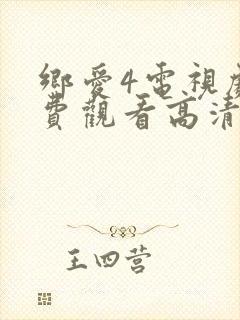 鄉愛4電視劇
費觀看高清
王四营